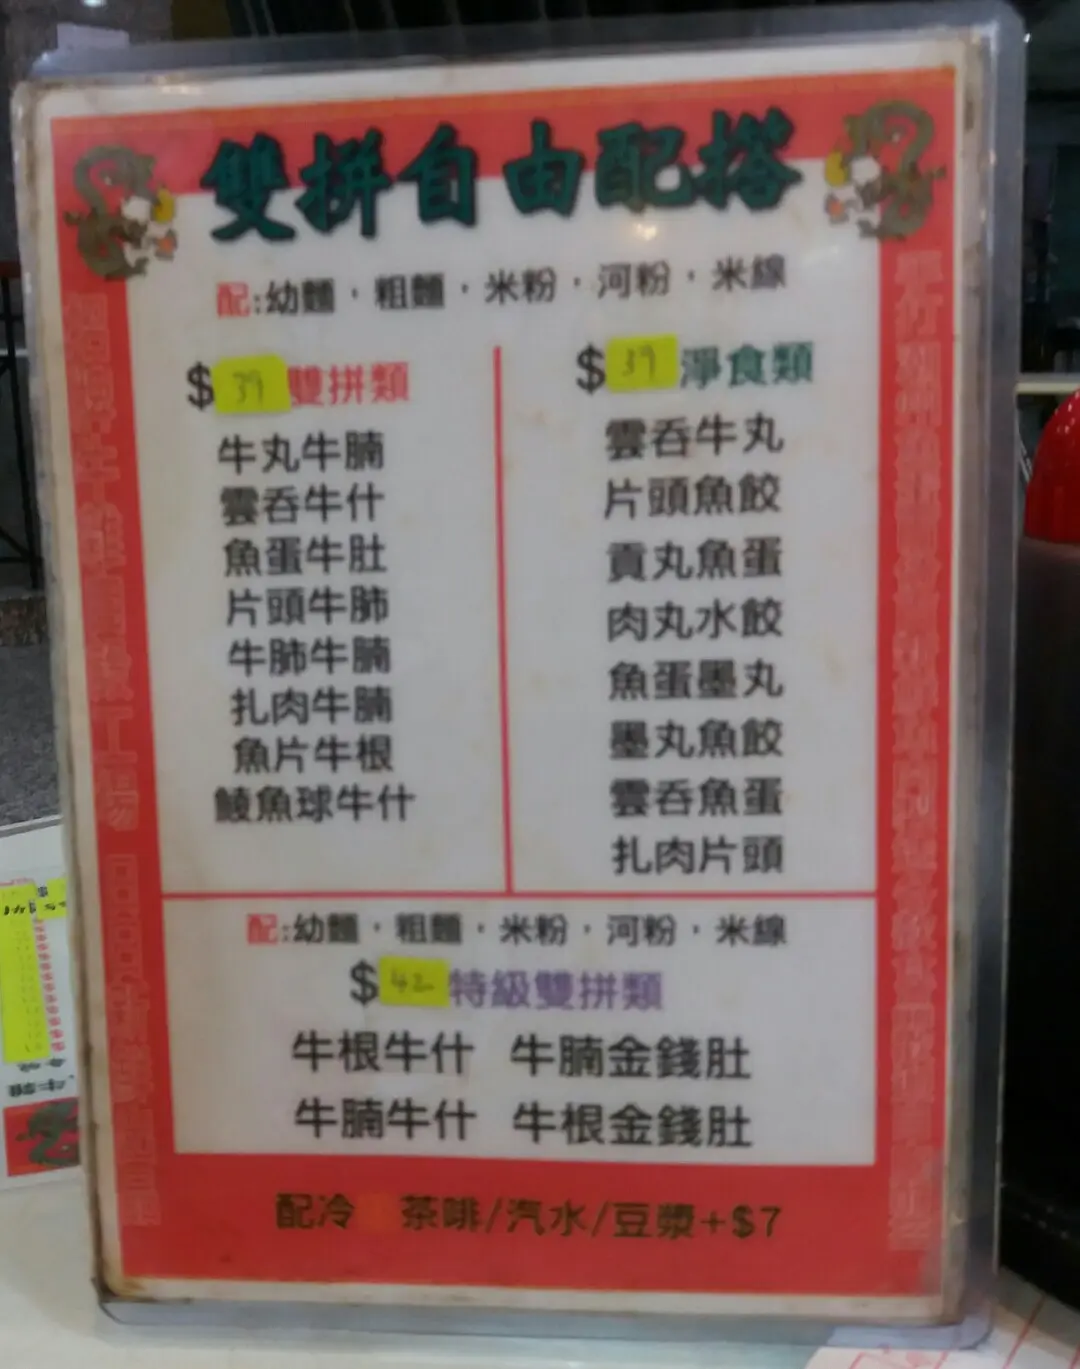 雙拼自由配搭
配:幼麵，粗麵，米粉，河粉，米線
$39雙拼類
牛丸牛腩
雲吞牛什
魚蛋牛肚
片頭牛肺
牛肺牛腩
扎肉牛腩
魚片牛根
鯪魚球牛什
$39淨食類
雲吞牛丸
片頭魚餃
貢丸魚蛋
肉丸水餃
魚蛋墨丸
墨丸魚餃
雲吞魚蛋
扎肉片頭
配:幼麵，粗麵，米粉，河粉，米線
$42特級雙拼類
牛根牛什 牛腩金錢肚
牛腩牛什 牛根金錢肚
配冷 茶啡/汽水/豆漿+$7